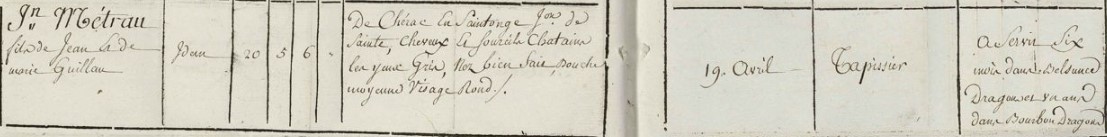 Jn Métrau
fils de Jean & de
marie Guillau
Idem
20 5 6 -
De Chérac En Saintonge Jon de
Sainte, Cheveux & sourcils Chatains
les yeux Gris, Nez bien fait, Bouche
moyenne Visage Rond /.
19. Avril
Tapissier
a Servit Six
mois dans Belsunce
Dragons et un ans
dans Bourbon Dragons